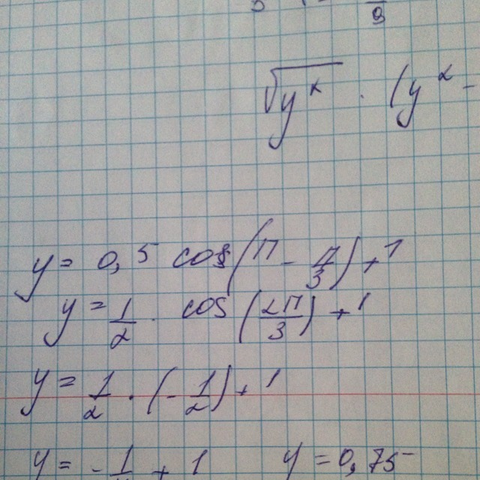 9
√y^x · (y^2 -
y = 0,5 cos(π - π/3) + 1
y = 1/2 · cos(2π/3) + 1
y = 1/2 · (-1/2) + 1
y = - 1/ + 1 y = 0,75